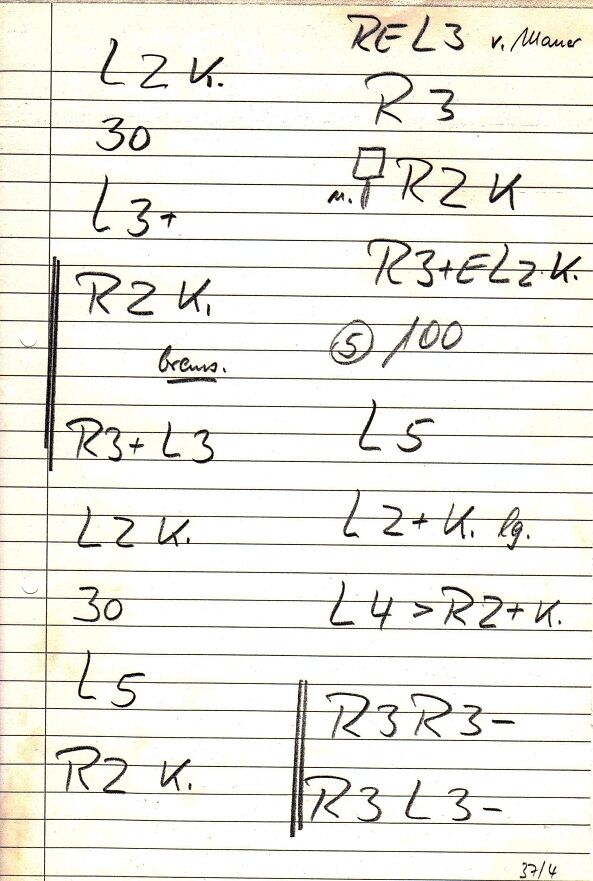 L2 K.
30
L3+
R2 K.
brems.
R3+ L3
L2 K.
30
L5
R2 K.
REL3 v. Mauer
R3
n. R2 K
R3+EL2 K.
5 /100
L5
L2+ K. lg.
L4 > R2+ K.
R3 R3-
R3 L3-
37/4